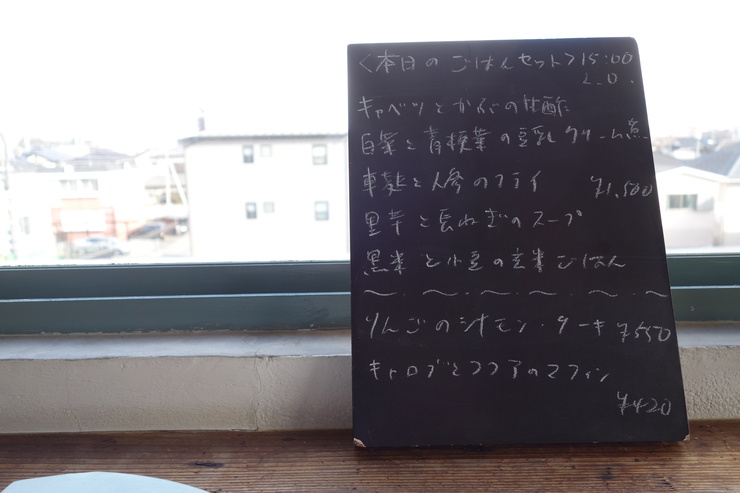 <本日の ごはんセット> 15:00
L.O.
キャベツとかぶの甘酢
白菜と青梗菜の豆乳クリーム煮
車麩と人参のフライ
¥1,500
里芋と長ねぎのスープ
黒米と小豆の玄米ごはん
りんごのシナモン・ケーキ ¥550
キャロブとココアのマフィン
¥420